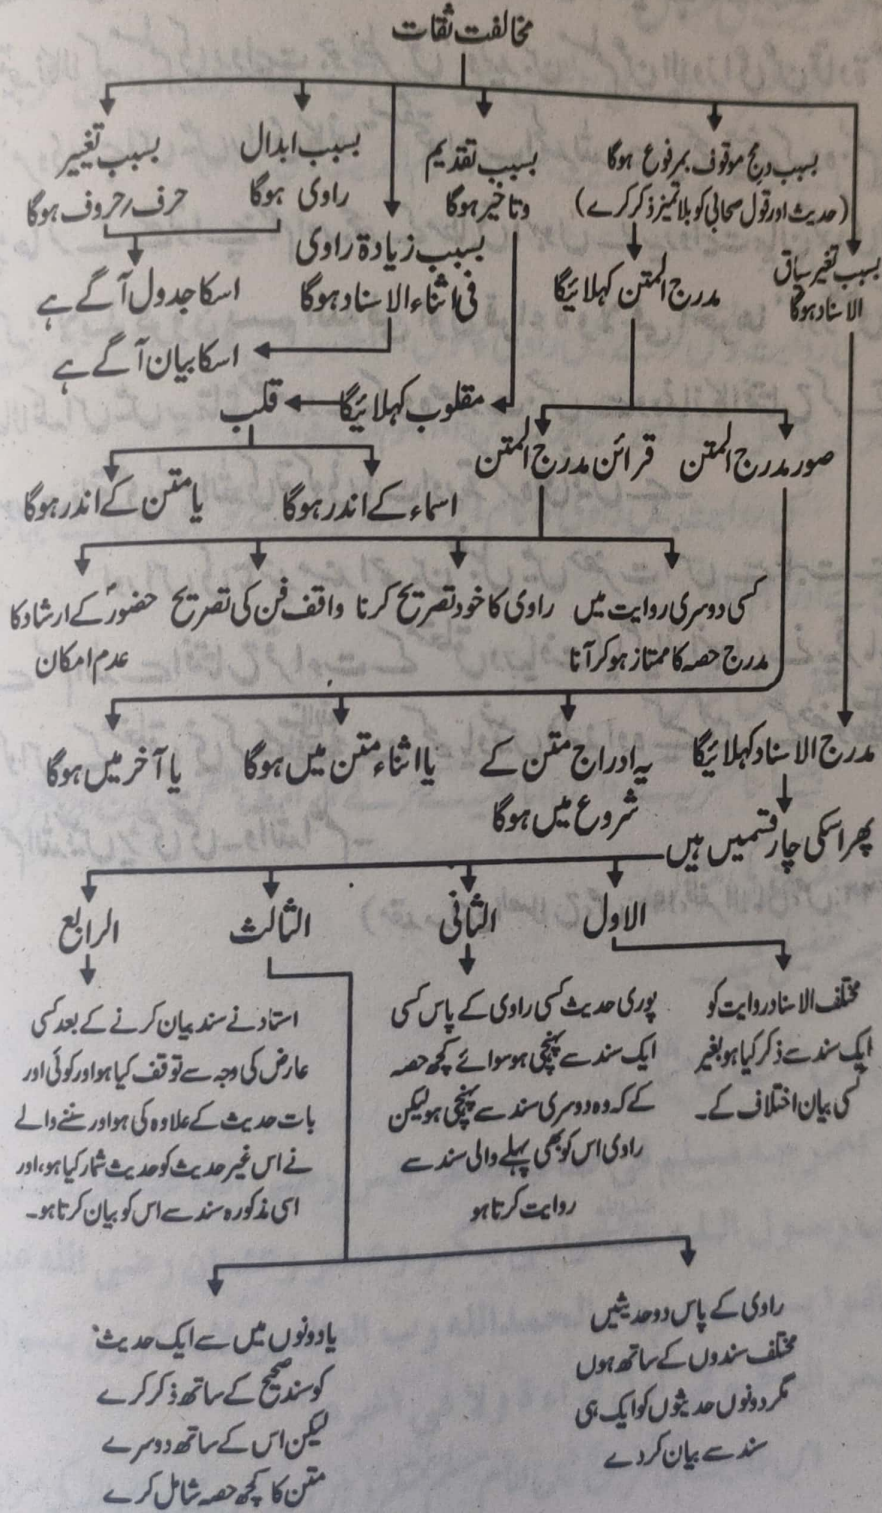 مخالفت ثقات
بسبب تغیر سیاق
الاسناد ہوگا
بسبب دمج موقوف بمرفوع ہوگا
(حدیث اور قول صحابی کو بلا تمیز ذکر کرے)
بسبب تقدیم
وتاخیر ہوگا
بسبب زیادۃ راوی
فی اثناء الاسناد ہوگا
بسبب ابدال
راوی ہوگا
بسبب تغییر
حرف/حروف ہوگا
مدرج المتن کہلائیگا
اسکا جدول آگے ہے
اسکا بیان آگے ہے
مقلوب کہلائیگا
قلب
صور مدرج المتن
قرائن مدرج المتن
اسماء کے اندر ہوگا
یا متن کے اندر ہوگا
کسی دوسری روایت میں
مدرج حصہ کا ممتاز ہو کر آنا
راوی کا خود تصریح کرنا
واقف فن کی تصریح
حضورؐ کے ارشاد کا
عدم امکان
مدرج الاسناد کہلائیگا
یہ ادراج متن کے
شروع میں ہوگا
یا اثناء متن میں ہوگا
یا آخر میں ہوگا
پھر اسکی چار قسمیں ہیں
الاول
الثانی
الثالث
الرابع
مختلف الاسناد روایت کو
ایک سند سے ذکر کیا ہو بغیر
کسی بیان اختلاف کے۔
پوری حدیث کسی راوی کے پاس کسی
ایک سند سے پہنچی ہو سوائے کچھ حصہ
کے کہ وہ دوسری سند سے پہنچی ہو لیکن
راوی اس کو بھی پہلے والی سند سے
روایت کرتا ہو
استاد نے سند بیان کرنے کے بعد کسی
عارض کی وجہ سے توقف کیا ہو اور کوئی اور
بات حدیث کے علاوہ کی ہو اور سننے والے
نے اس غیر حدیث کو حدیث شمار کیا ہو، اور
اسی مذکورہ سند سے اس کو بیان کرتا ہو۔
راوی کے پاس دو حدیثیں
مختلف سندوں کے ساتھ ہوں
مگر دونوں حدیثوں کو ایک ہی
سند سے بیان کردے
یا دونوں میں سے ایک حدیث
کو سند صحیح کے ساتھ ذکر کرے
لیکن اس کے ساتھ دوسرے
متن کا کچھ حصہ شامل کرے